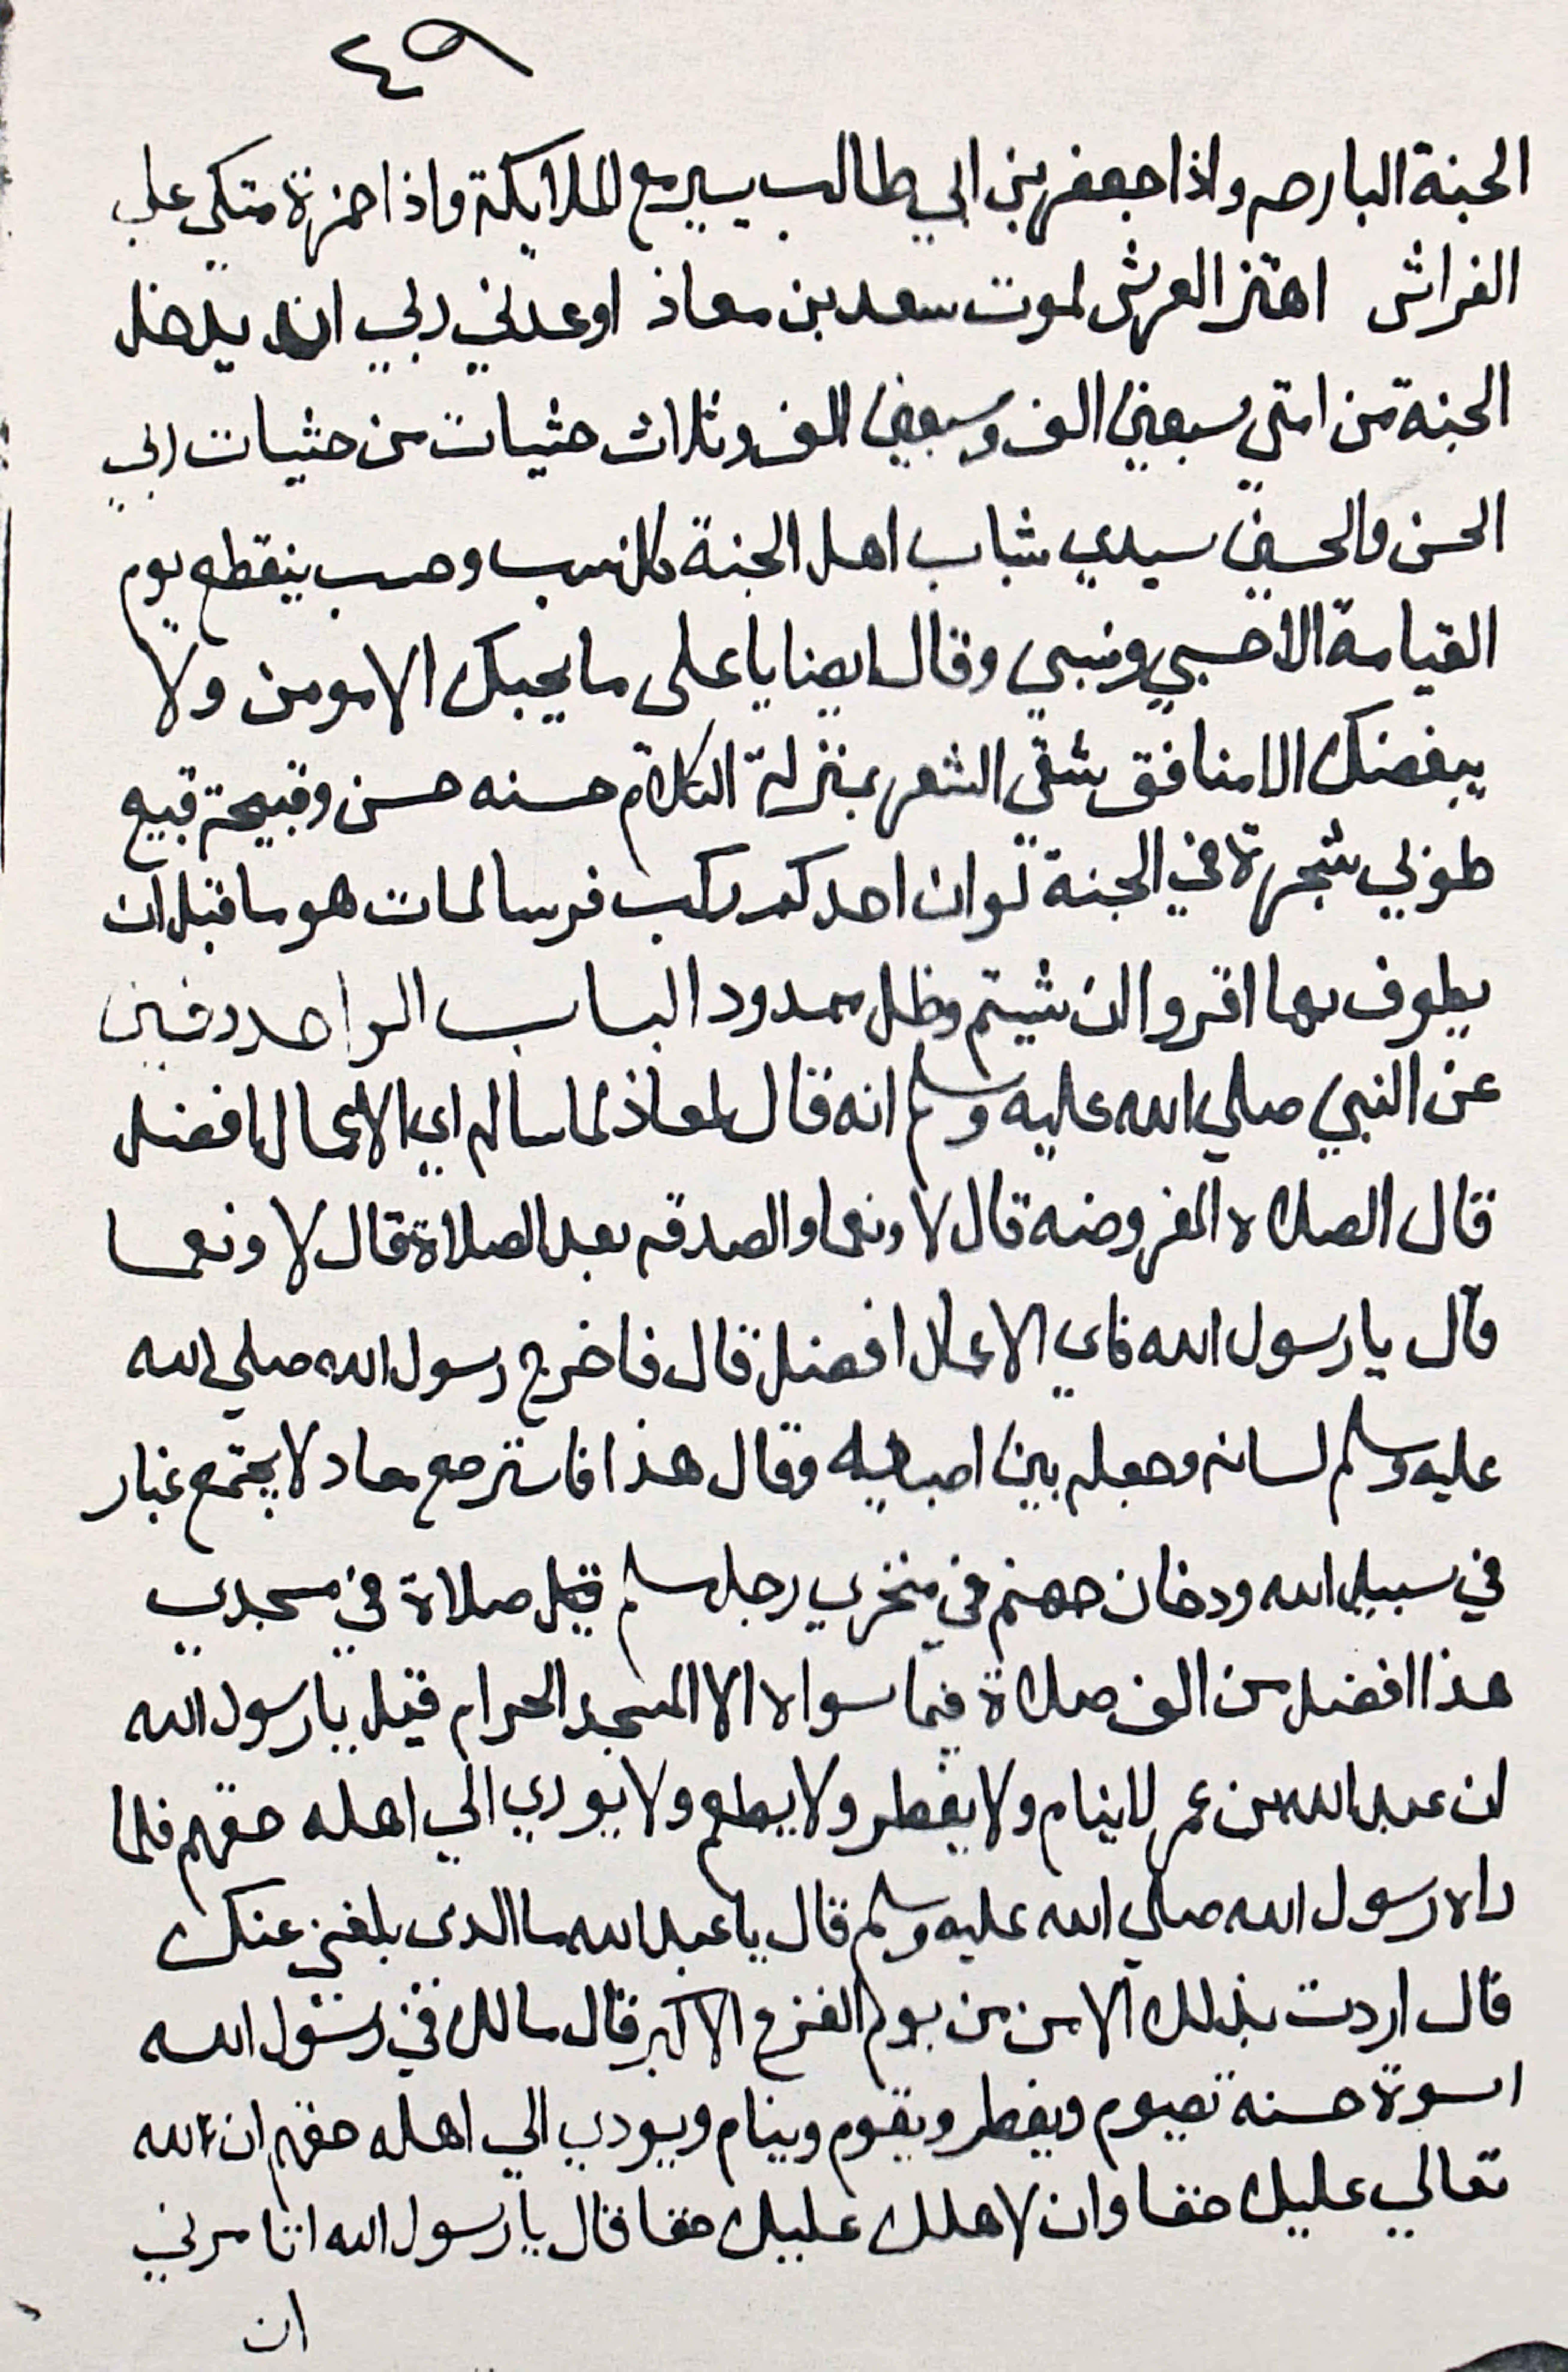 ٤٩
الجنة البارحه واذا جعفر بن ابي طالب يسير مع الملايكة واذا حمزة متكي علي
الفراش اهتز العرش لموت سعد بن معاذ اوعدني ربي ان يدخل
الجنة من امتي سبعين الف وسبعين الف وثلاث حثيات من حثيات ربي
الحسن والحسين سيدي شباب اهل الجنة كل نسب وحسب ينقطع يوم
القيامة الا حسبي ونسبي وقال ايضا يا على ما يحبك الا مومن ولا
يبغضك الا منافق شقي الشعر بمنزلة الكلام حسنه حسن وقبيحة قبيح
طوبي شجرة في الجنة لو ان احدكم ركب فرسا لمات هوما قبل ان
يطوف بها اقروا ان شيتم وظل ممدود الباب الواحد وفين
عن النبي صلي الله عليه وسلم انه قال لمعاذ لما ساله اي الاعمال افضل
قال الصلاه المفروضه قال لا ونعما والصدقه بعد الصلاة قال لا ونعما
قال يا رسول الله فاي الاعمال افضل قال فاخرج رسول الله صلي الله
عليه وسلم لسانه وجعله بين اصبعيه وقال هذا فاسترجع معاد لا يجتمع غبار
في سبيل الله ودخان جهنم في منخري رجل مسلم قيل صلاة في مسجدي
هذا افضل من الف صلاة فيما سواه الا المسجد الحرام قيل يا رسول الله
ان عبد الله بن عمر لا ينام ولا يفطر ولا يطعم ولا يودي الي اهله حقهم فلما
راه رسول الله صلي الله عليه وسلم قال يا عبد الله ما الدى بلغني عنك
قال اردت بذلك الامن من يوم الفزع الاكبر قال مالك في رسول الله
اسوة حسنة تصوم ويفطر ويقوم وينام ويودي الي اهله حقهم ان لله
تعالي عليك حقا وان لاهلك عليك حقا قال يا رسول الله اتامرني
ان